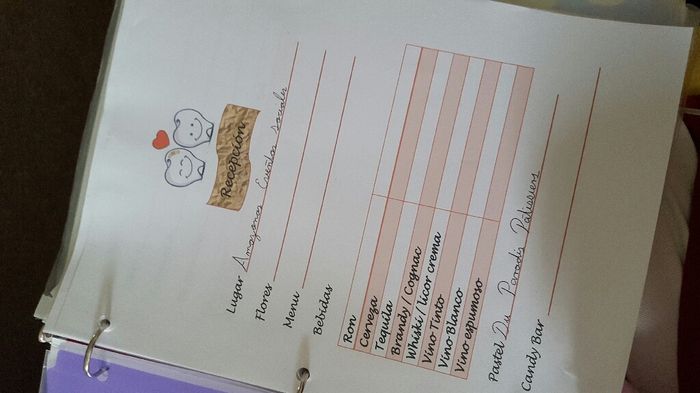 Recepcion
Lugar Amazonas Eventos sociales
Flores
Menu
Bebidas
Ron
Cerveza
Tequila
Brandy / Cognac
Whiski / licor crema
Vino Tinto
Vino Blanco
Vino espumoso
Pastel Du Paradis Patissiers
Candy Bar